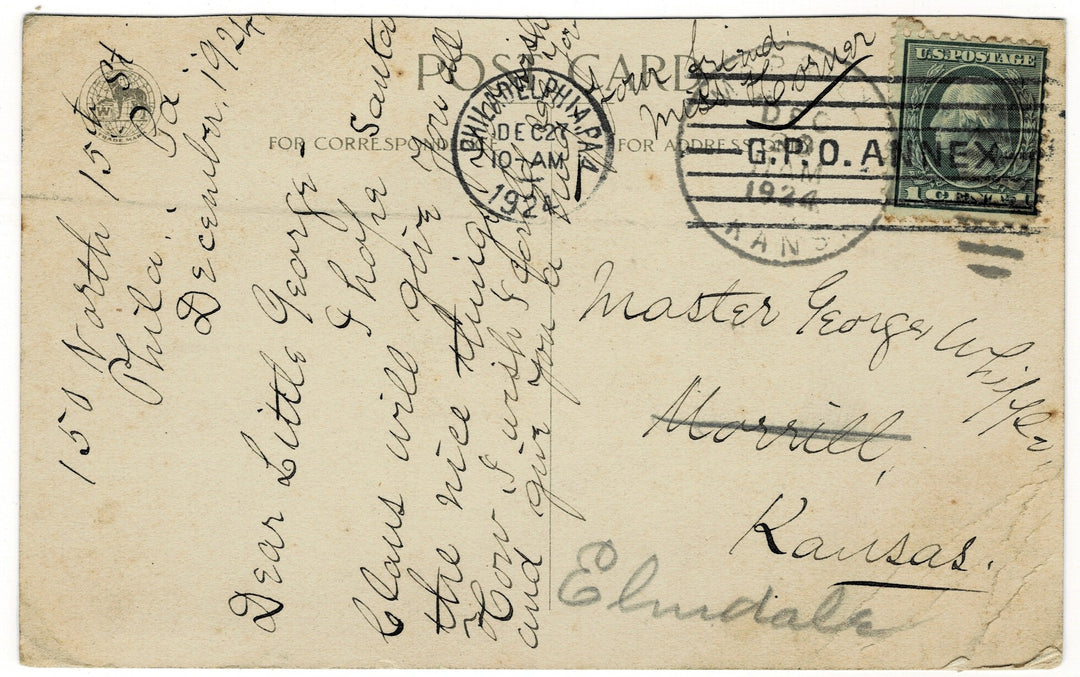 150 North 15th St
Phila. Pa
December, 1924
Dear Little George -
I hope Santa
Claus will give you all
the nice things
How I wish I could
and give you a
Your friend.
Miss Horner
POST CARD
FOR CORRESPONDENCE
FOR ADDRESS
PHILADELPHIA, PA.
DEC 27
10-AM
1924
G.P.O. ANNEX
DEC
AM
1924
KANS.
U.S. POSTAGE
1 CENT 1
Master George Whipple
Morrill,
Kansas.
Elmdale